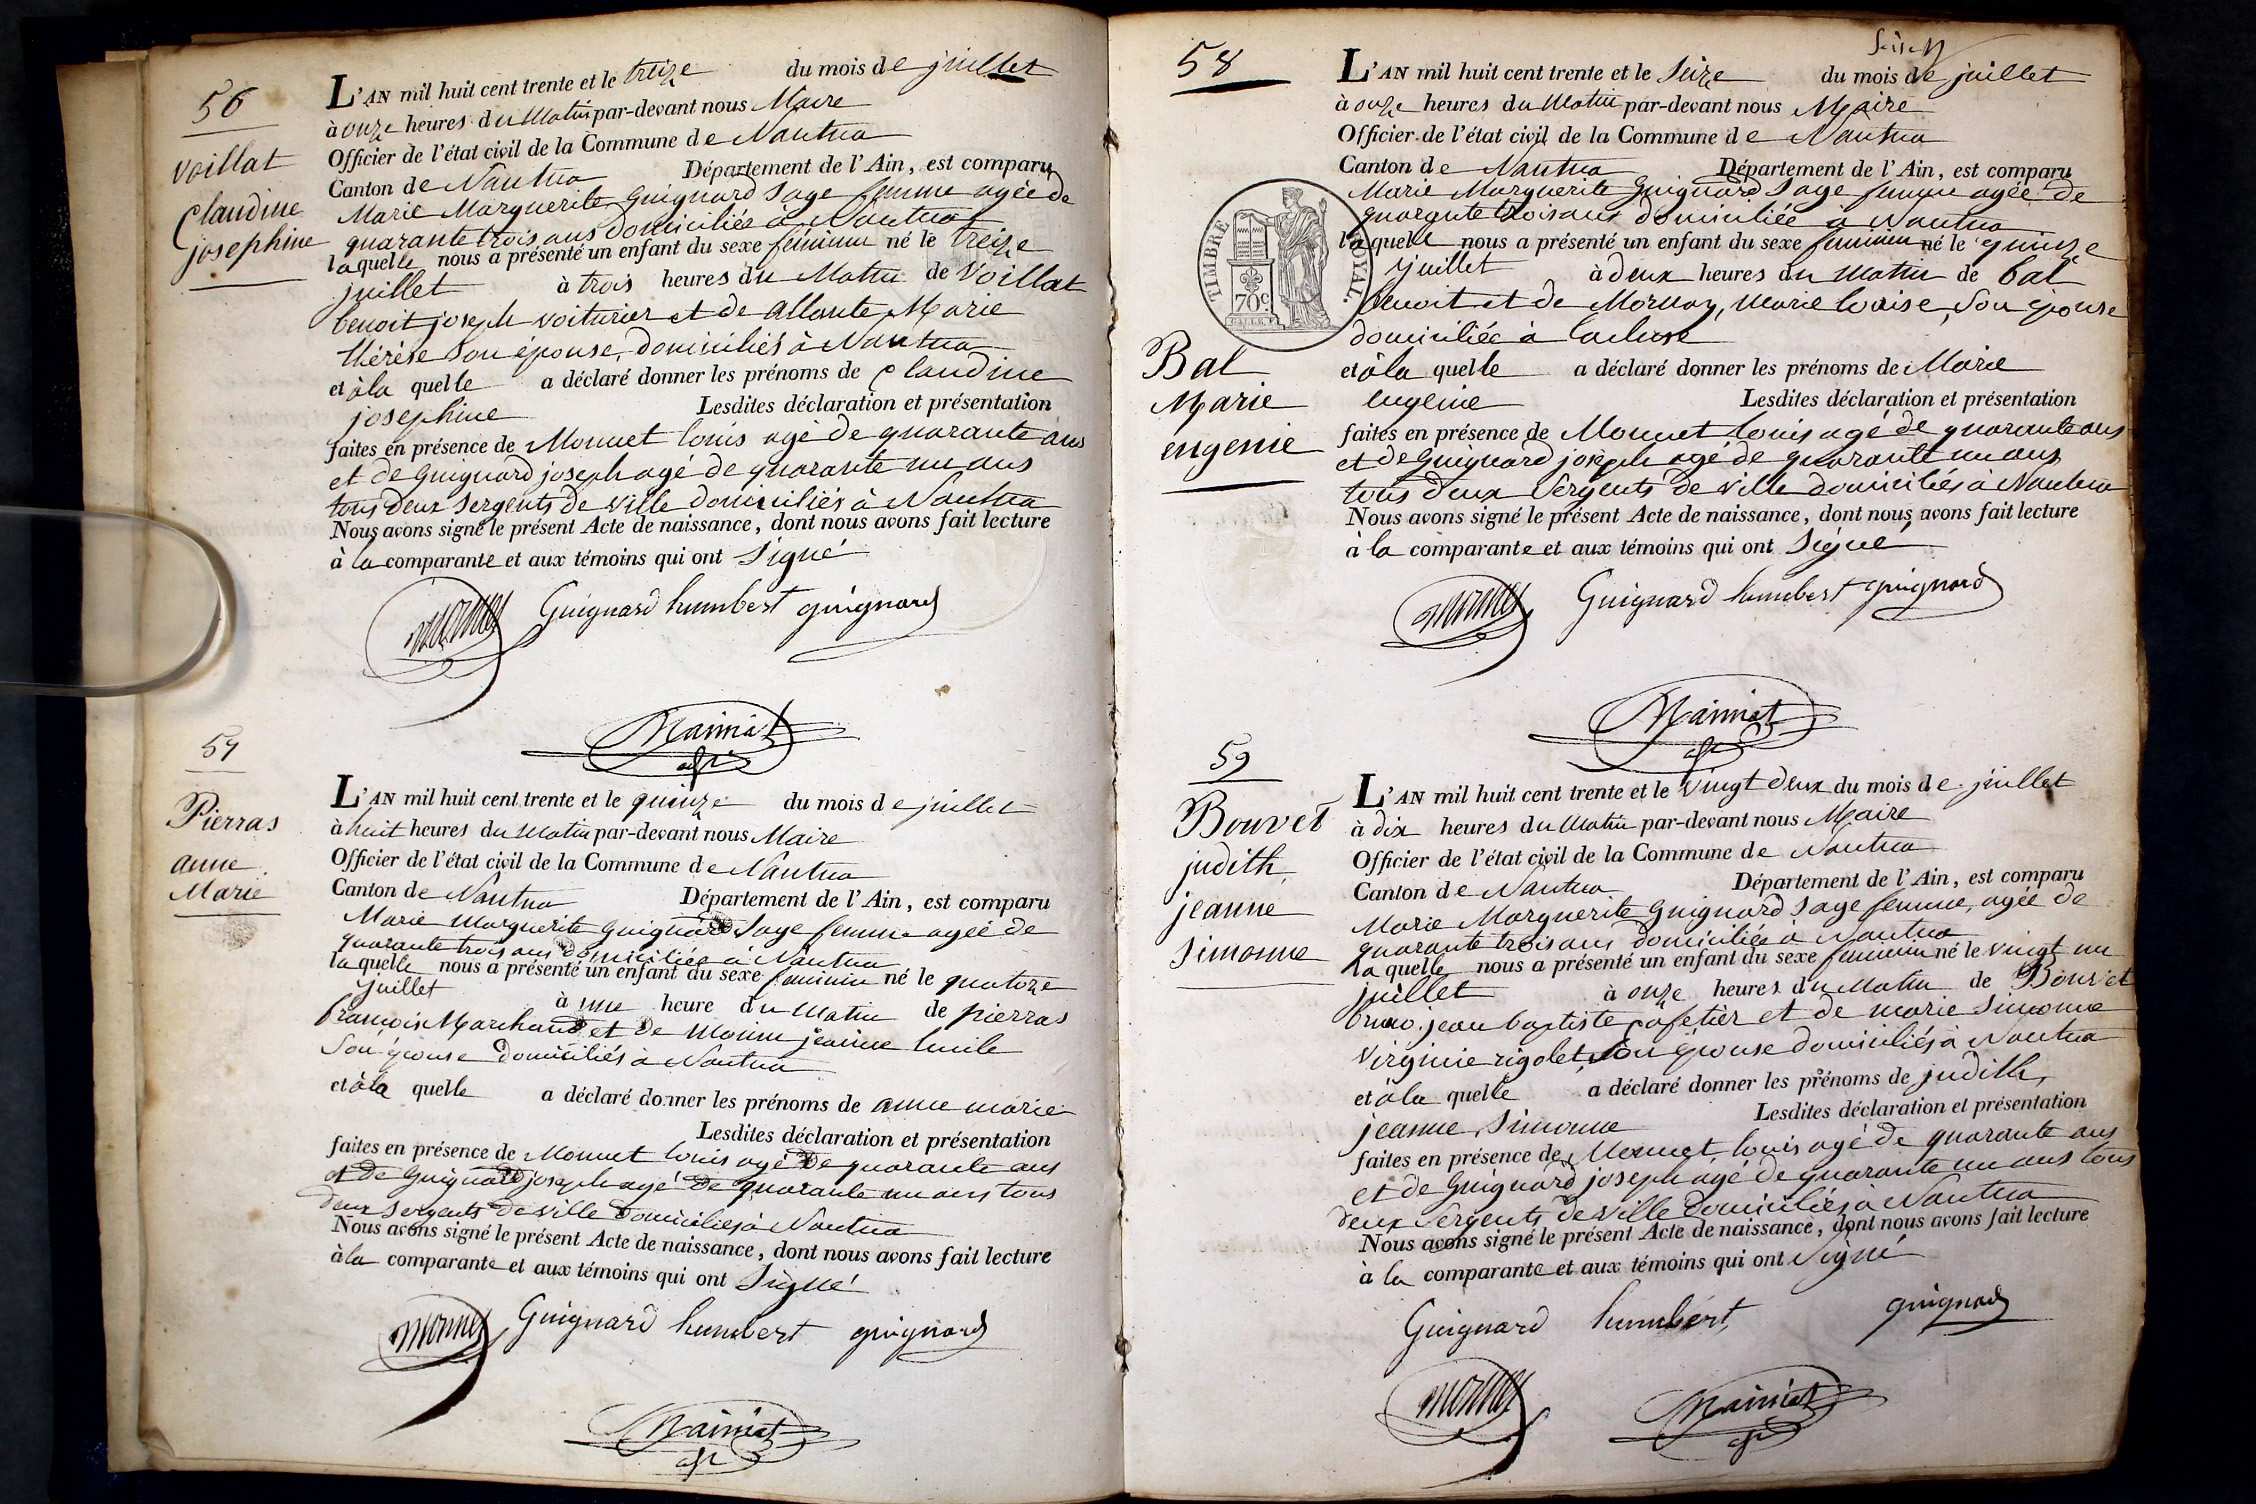 56
Voillat
Claudine
josephine
L'AN mil huit cent trente et le treize du mois de juillet
à onze heures du Matin par-devant nous Maire
Officier de l'état civil de la Commune de Nantua
Canton de Nantua Département de l'Ain, est comparu
Marie Marguerite Guignard Sage femme agée de
quarante trois ans domiciliée à Nantua
laquelle nous a présenté un enfant du sexe féminin né le treize
juillet à trois heures du Matin de Voillat
benoit joseph voiturier et de allante Marie
thérèse son épouse, domiciliés à Nantua
et à la quelle a déclaré donner les prénoms de Claudine
josephine Lesdites déclaration et présentation
faites en présence de Monnet louis agé de quarante ans
et de Guignard joseph agé de quarante un ans
tous deux Sergents de ville domiciliés à Nantua
Nous avons signé le présent Acte de naissance, dont nous avons fait lecture
à la comparante et aux témoins qui ont Signé
Monnet Guignard humbert guignard
Mainiat
57
Pierras
anne
Marie
L'AN mil huit cent trente et le quinze du mois de juillet
à huit heures du Matin par-devant nous Maire
Officier de l'état civil de la Commune de Nantua
Canton de Nantua Département de l'Ain, est comparu
Marie Marguerite Guignard Sage femme agée de
quarante trois ans domiciliée à Nantua
laquelle nous a présenté un enfant du sexe féminin né le quatorze
juillet à une heure du Matin de pierras
françois Marchand et de Monin jeanne lucile
Son épouse domiciliés à Nantua
et à la quelle a déclaré donner les prénoms de anne marie
Lesdites déclaration et présentation
faites en présence de Monnet louis agé de quarante ans
et de Guignard joseph agé de quarante un ans tous
deux Sergents de ville domiciliés à Nantua
Nous avons signé le présent Acte de naissance, dont nous avons fait lecture
à la comparante et aux témoins qui ont Signé
Monnet Guignard humbert guignard
Mainiat
58
Bal
Marie
eugenie
TIMBRE ROYAL.
70c
L'AN mil huit cent trente et le Seize du mois de juillet
à onze heures du Matin par-devant nous Maire
Officier de l'état civil de la Commune de Nantua
Canton de Nantua Département de l'Ain, est comparu
Marie Marguerite Guignard Sage femme agée de
quarante trois ans domiciliée à Nantua
laquelle nous a présenté un enfant du sexe féminin né le quinze
juillet à deux heures du Matin de bal
benoit et de Mornay, Marie louise, Son épouse
domiciliée à lacluse
et à la quelle a déclaré donner les prénoms de Marie
eugenie Lesdites déclaration et présentation
faites en présence de Monnet louis agé de quarante ans
et de Guignard joseph agé de quarante un ans
tous deux Sergents de ville domiciliés à Nantua
Nous avons signé le présent Acte de naissance, dont nous avons fait lecture
à la comparante et aux témoins qui ont Signé
Monnet Guignard humbert guignard
Mainiat
59
Bouvet
judith,
jeanne
Simonne
L'AN mil huit cent trente et le vingt deux du mois de juillet
à dix heures du Matin par-devant nous Maire
Officier de l'état civil de la Commune de Nantua
Canton de Nantua Département de l'Ain, est comparu
Marie Marguerite Guignard Sage femme, agée de
quarante trois ans domiciliée à Nantua
laquelle nous a présenté un enfant du sexe féminin né le vingt un
juillet à onze heures du Matin de Bouvet
jean baptiste cafetier et de marie Simonne
Virginie rigolet, Son épouse domiciliés à Nantua
et à la quelle a déclaré donner les prénoms de judith,
jeanne, Simonne Lesdites déclaration et présentation
faites en présence de Monnet, louis agé de quarante ans
et de Guignard joseph agé de quarante un ans tous
deux Sergents de ville domiciliés à Nantua
Nous avons signé le présent Acte de naissance, dont nous avons fait lecture
à la comparante et aux témoins qui ont Signé
Guignard humbert, guignard
Monnet Mainiat